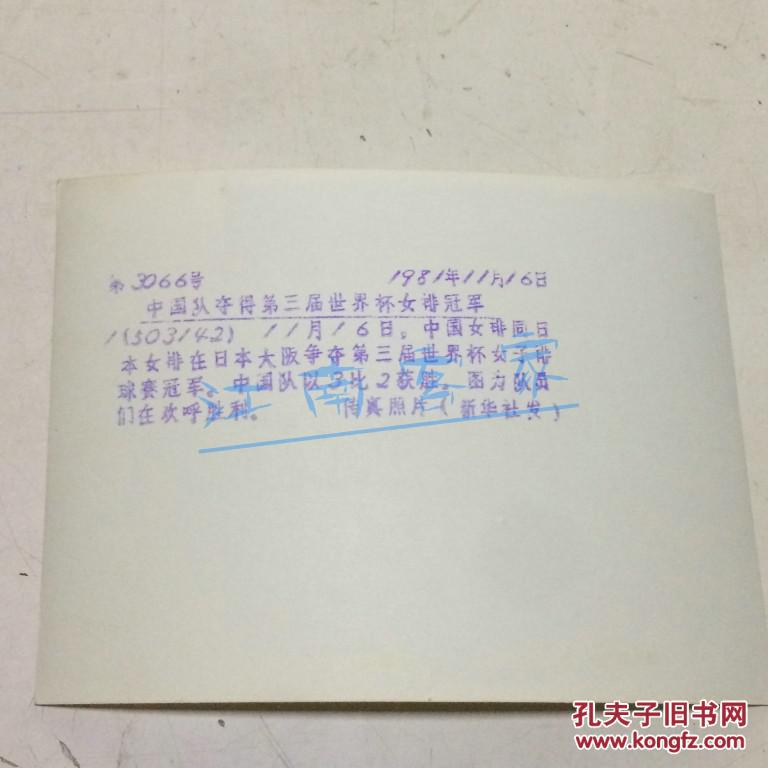 第3066号 1981年11月16日
中国队夺得第三届世界杯女排冠军
1(503142) 11月16日。中国女排同日
本女排在日本大阪争夺第三届世界杯女子排
球赛冠军。中国队以3比2获胜。图为队员
们在欢呼胜利。 传真照片(新华社发)
江南客家
孔夫子旧书网
www.kongfz.com